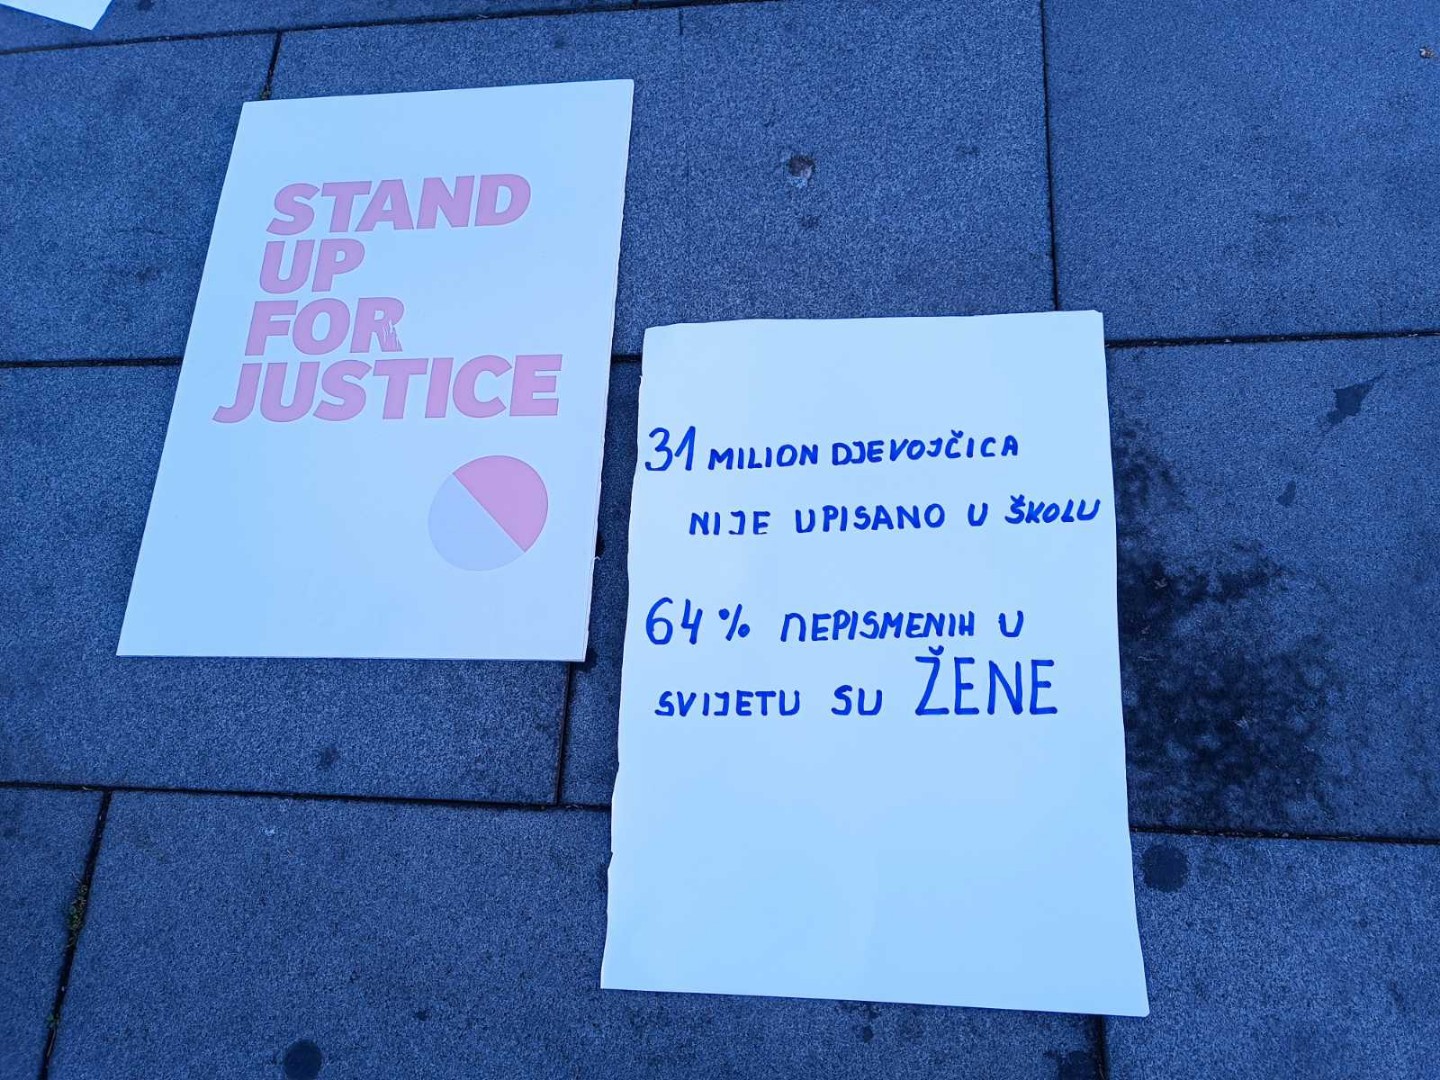 STAND
UP
FOR
JUSTICE
31 MILION DJEVOJČICA
NIJE UPISANO U ŠKOLU
64% NEPISMENIH U
SVIJETU SU ŽENE